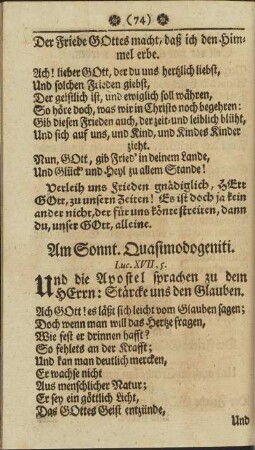 (74)
Der Friede GOttes macht, daß ich den Him-
mel erbe.
Ach! lieber GOtt, der du uns hertzlich liebst,
Und solchen Frieden giebst,
Der geistlich ist, und ewiglich soll währen,
So höre doch, was wir in Christo noch begehren:
Gib diesen Frieden auch, der zeit- und leiblich blüht,
Und sich auf uns, und Kind, und Kindes Kinder
zieht.
Nun, GOtt, gib Fried' in deinem Lande,
Und Glück und Heyl zu allem Stande!
Verleih uns Frieden gnädiglich, HErr
GOtt, zu unsern Zeiten! Es ist doch ja kein
ander nicht, der für uns könte streiten, dann
du, unser GOtt, alleine.
Am Sonnt. Quasimodogeniti.
Luc. XVII. 5.
Und die Apostel sprachen zu dem
HErrn: Stärcke uns den Glauben.
Ach GOtt! es läßt sich leicht vom Glauben sagen;
Doch wenn man will das Hertze fragen,
Wie fest er drinnen hafft?
So fehlets an der Krafft;
Und kan man deutlich mercken,
Er wachse nicht
Aus menschlicher Natur;
Er sey ein göttlich Licht,
Das GOttes Geist entzünde,
Und